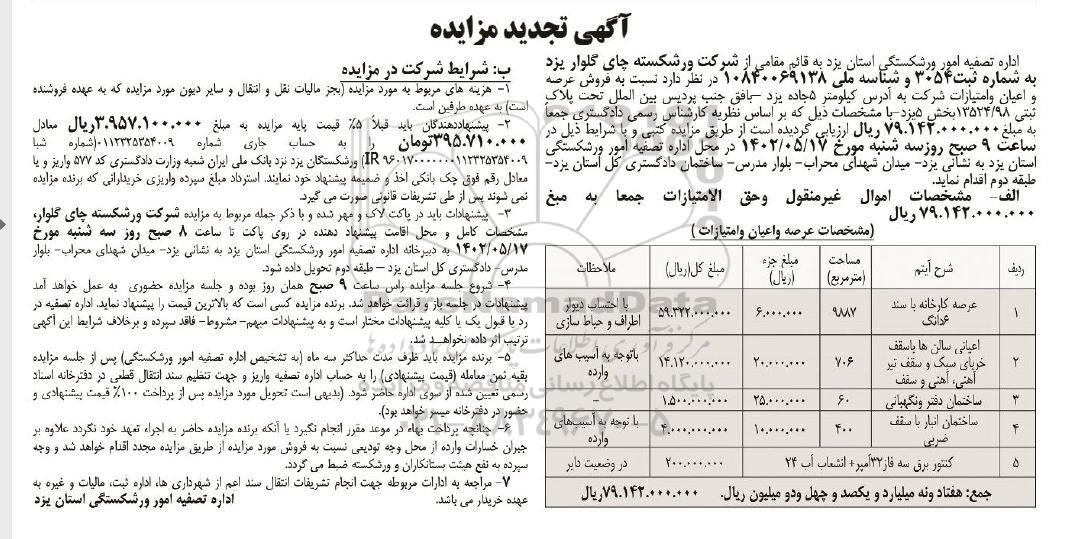 آگهی تجدید مزایده
اداره تصفیه امور ورشکستگی استان یزد به قائم مقامی از شرکت ورشکسته چای گلوار یزد
به شماره ثبت۳۰۵۴ و شناسه ملی ۱۰۸۴۰۰۶۹۱۳۸ در نظر دارد نسبت به فروش عرصه
و اعیان وامتیازات شرکت به آدرس کیلومتر ۵جاده یزد –بافق جنب پردیس بین الملل تحت پلاک
ثبتی ۱۳۵۲۴/۹۸بخش ۵یزد-با مشخصات ذیل که بر اساس نظریه کارشناس رسمی دادگستری جمعا
به مبلغ۷۹.۱۴۲.۰۰۰.۰۰۰ ریال ارزیابی گردیده است از طریق مزایده کتبی و با شرایط ذیل در
ساعت ۹ صبح روزسه شنبه مورخ ۱۴۰۲/۰۵/۱۷ در محل اداره تصفیه امور ورشکستگی
استان یزد به نشانی یزد- میدان شهدای محراب- بلوار مدرس- ساختمان دادگستری کل استان یزد-
طبقه دوم اقدام نماید.
الف- مشخصات اموال غیرمنقول وحق الامتیازات جمعا به مبلغ
۷۹.۱۴۲.۰۰۰.۰۰۰ ریال
(مشخصات عرصه واعیان وامتیازات )
ردیف شرح آیتم مساحت (مترمربع) مبلغ جزء (ریال) مبلغ کل(ریال) ملاحظات
۱ عرصه کارخانه با سند ۶دانگ ۹۸۸۷ ۶.۰۰۰.۰۰۰ ۵۹.۳۲۲.۰۰۰.۰۰۰ با احتساب دیوار اطراف و حیاط سازی
۲ اعیانی سالن ها باسقف خرپای سبک و سقف تیر آهنی، آهنی و سقف ۷۰۶ ۲۰.۰۰۰.۰۰۰ ۱۴.۱۲۰.۰۰۰.۰۰۰ باتوجه به آسیب های وارده
۳ ساختمان دفتر ونگهبانی ۶۰ ۲۵.۰۰۰.۰۰۰ ۱.۵۰۰.۰۰۰.۰۰۰ -
۴ ساختمان انبار با سقف ضربی ۴۰۰ ۱۰.۰۰۰.۰۰۰ ۴.۰۰۰.۰۰۰.۰۰۰ با توجه به آسیب‌های وارده
۵ کنتور برق سه فاز۳۲آمپر+ انشعاب آب ۲۴ ۲۰۰.۰۰۰.۰۰۰ در وضعیت دایر
جمع: هفتاد ونه میلیارد و یکصد و چهل ودو میلیون ریال. ۷۹.۱۴۲.۰۰۰.۰۰۰ریال
ب: شرایط شرکت در مزایده
۱- هزینه های مربوط به مورد مزایده (بجز مالیات نقل و انتقال و سایر دیون مورد مزایده که به عهده فروشنده
است) به عهده طرفین است.
۲- پیشنهاددهندگان باید قبلاً ۵٪ قیمت پایه مزایده به مبلغ ۳.۹۵۷.۱۰۰.۰۰۰ریال معادل
۳۹۵.۷۱۰.۰۰۰تومان را به حساب جاری شماره ۰۱۱۲۳۲۵۳۵۴۰۰۹(شماره شبا
IR ۹۶۰۱۷۰۰۰۰۰۰۰۱۱۲۳۲۵۳۵۴۰۰۹) ورشکستگان یزد نزد بانک ملی ایران شعبه وزارت دادگستری کد ۵۷۷ واریز و یا
معادل رقم فوق چک بانکی اخذ و ضمیمه پیشنهاد خود نمایند. استرداد مبلغ سپرده واریزی خریدارانی که برنده مزایده
نمی شوند پس از طی تشریفات قانونی صورت می گیرد.
۳- پیشنهادات باید در پاکت لاک و مهر شده و با ذکر جمله مربوط به مزایده شرکت ورشکسته چای گلوار،
مشخصات کامل و محل اقامت پیشنهاد دهنده در روی پاکت تا ساعت ۸ صبح روز سه شنبه مورخ
۱۴۰۲/۰۵/۱۷ به دبیرخانه اداره تصفیه امور ورشکستگی استان یزد به نشانی یزد- میدان شهدای محراب- بلوار
مدرس- دادگستری کل استان یزد – طبقه دوم تحویل داده شود.
۴- شروع جلسه مزایده راس ساعت ۹ صبح همان روز بوده و جلسه مزایده حضوری به عمل خواهد آمد
پیشنهادات در جلسه باز و قرائت خواهد شد. برنده مزایده کسی است که بالاترین قیمت را پیشنهاد نماید. اداره تصفیه در
رد یا قبول یک یا کلیه پیشنهادات مختار است و به پیشنهادات مبهم- مشروط- فاقد سپرده و برخلاف شرایط این آگهی
ترتیب اثر داده نخواهد شد.
۵- برنده مزایده باید ظرف مدت حداکثر سه ماه (به تشخیص اداره تصفیه امور ورشکستگی) پس از جلسه مزایده
بقیه ثمن معامله (قیمت پیشنهادی) را به حساب اداره تصفیه واریز و جهت تنظیم سند انتقال قطعی در دفترخانه اسناد
رسمی تعیین شده از سوی اداره حاضر شود. (بدیهی است تحویل مورد مزایده پس از پرداخت ۱۰۰٪ قیمت پیشنهادی و
حضور در دفترخانه میسر خواهد بود).
۶- چنانچه پرداخت بهاء در موعد مقرر انجام نگیرد یا آنکه برنده مزایده حاضر به اجراء تعهد خود نگردد علاوه بر
جبران خسارات وارده از محل وجه تودیعی نسبت به فروش مورد مزایده از طریق مزایده مجدد اقدام خواهد شد و وجه
سپرده به نفع هیئت بستانکاران و ورشکسته ضبط می گردد.
۷- مراجعه به ادارات مربوطه جهت انجام تشریفات انتقال سند اعم از شهرداری ها، اداره ثبت، مالیات و غیره به
عهده خریدار می باشد.
اداره تصفیه امور ورشکستگی استان یزد
ParsNamadData
پایگاه اطلاع رسانی مناقصه و مزایده